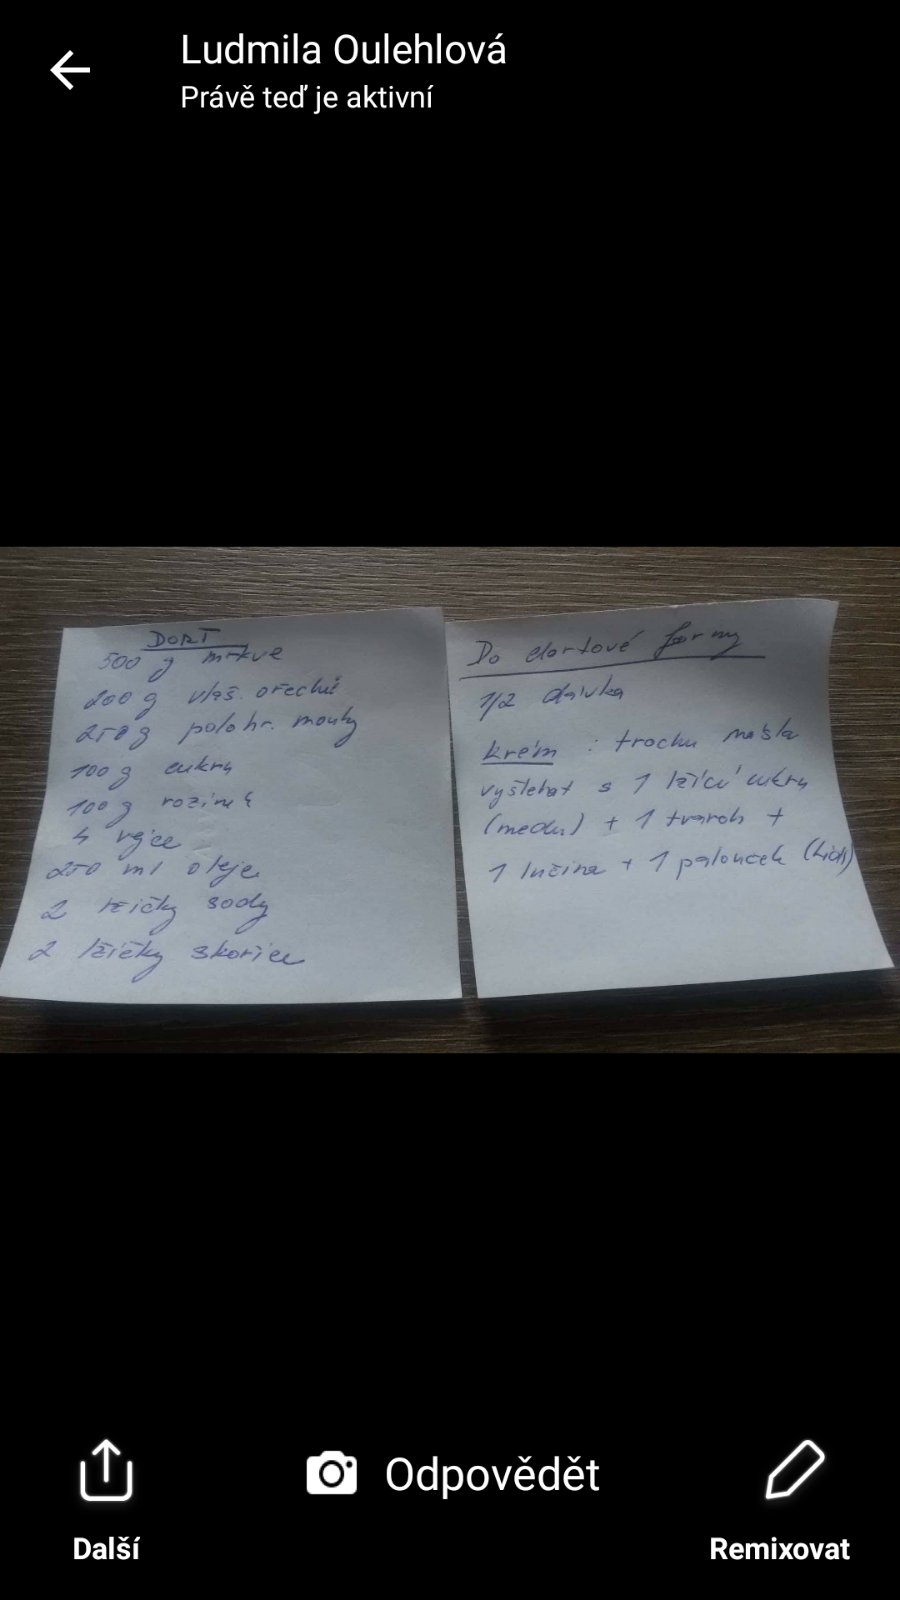 Ludmila Oulehlová
Právě teď je aktivní
DORT
500 g mrkve
200 g vlaš. ořechů
250 g polohr. mouky
100 g cukru
100 g rozinek
4 vejce
250 ml oleje
2 lžičky sody
2 lžičky skořice
Do dortové formy
1/2 dávka
krém : trochu másla
vyšlehat s 1 lžící cukru
(medu) + 1 tvaroh +
1 lučina + 1 palouček
Další
Odpovědět
Remixovat